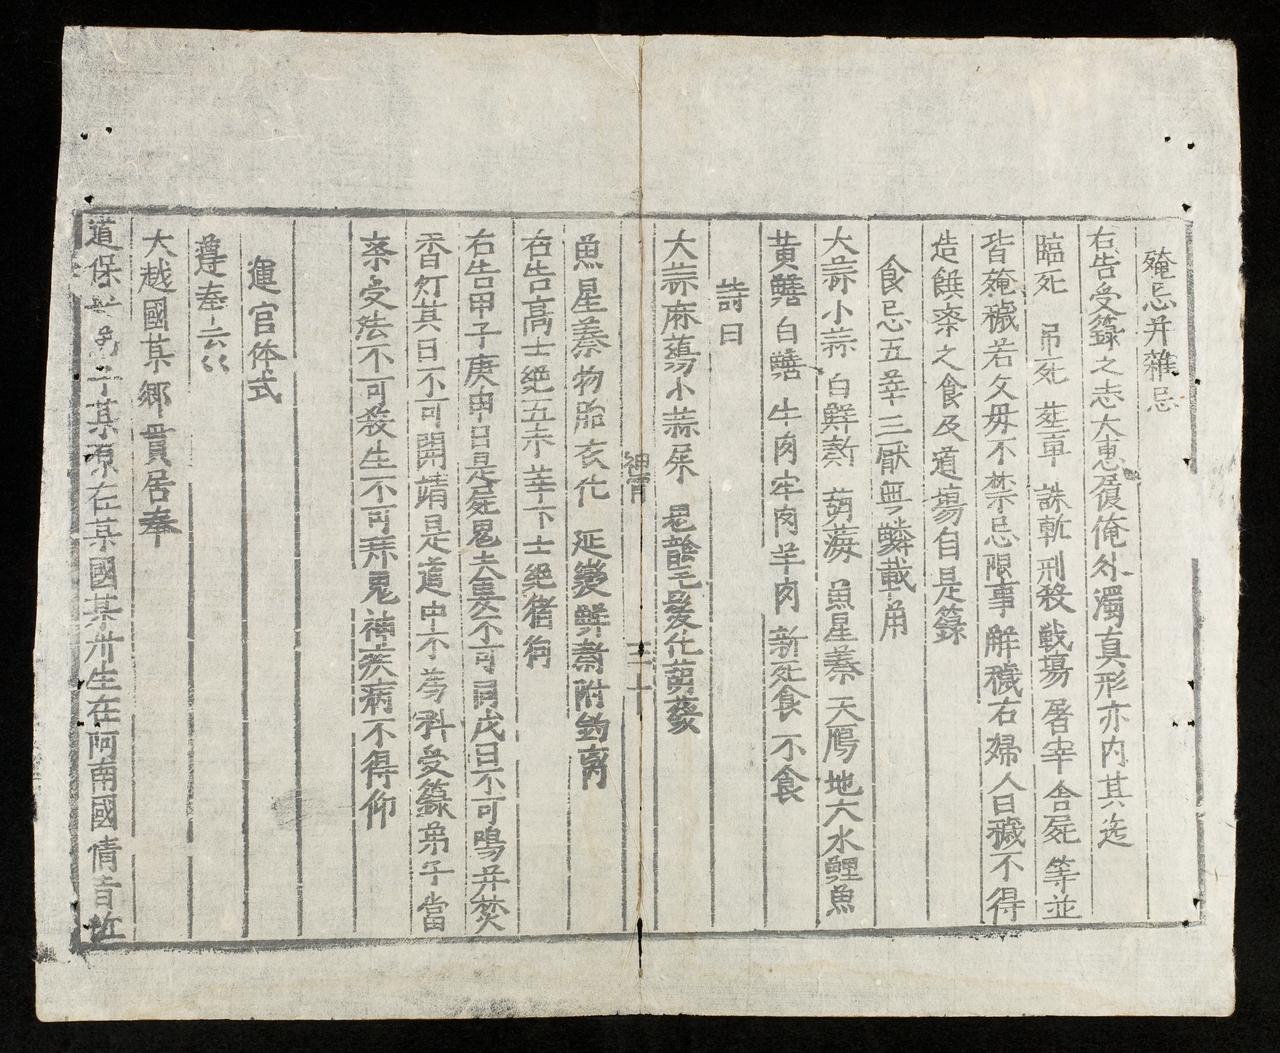 殗忌并雜忌
右告受籙之志大惠㾱俺外濁真形亦内其迄
臨死 吊死 莚車 誅斬刑殺 戰場 屠宰 舍屍 等並
皆殗穢若父毋不禁忌限事解穢右婦人日穢不得
造饌齋之食及道場自是籙
食忌五葷三厭無鱗載角
大蒜小蒜 白鮮 葫荽 魚星蓁 天鴈 地犬水鯉魚
黄鱔白鱔 牛肉牢肉羊肉 新死食不食
詩曰
大蒜麻蕩小蒜屎 毛髮化葱蔆
神霄
三十
魚星蓁物胎衣化 延變鮮 附
右告高士絶五末葷下士絶猪狗
右告甲子庚申日是屍鬼去不可同戌日不可鳴并焚
香灯其日不可開靖是道中不為科受籙弟子當
齋受法不可殺生不可拜鬼神疾病不得仰
運官体式
遵奉云〻
大越國某郷貫居奉
道保 某原在某國某州生在阿南國情旨